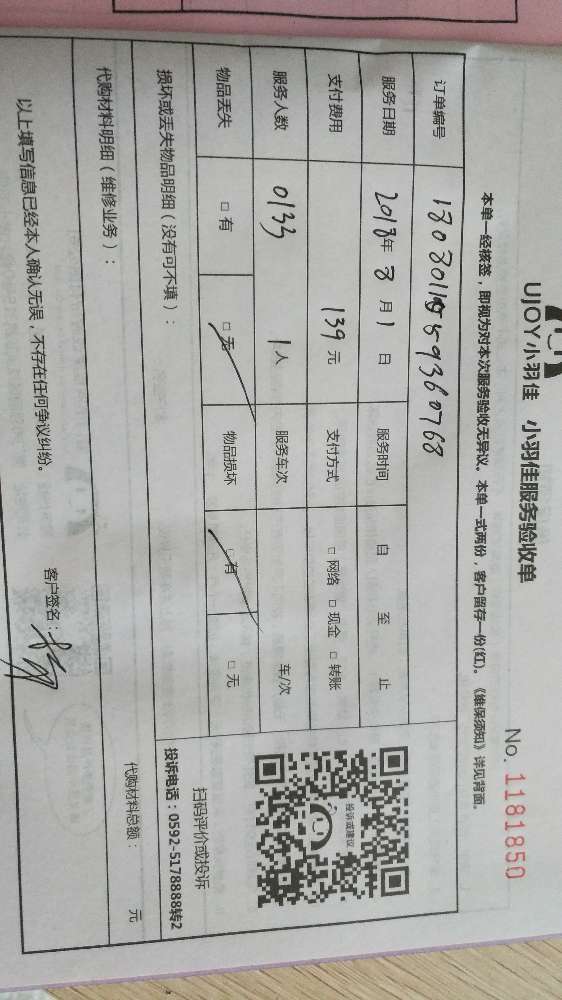 UJOY小羽佳 小羽佳服务验收单
No. 1181850
本单一经核签，即视为对本次服务验收无异议。本单一式两份，客户留存一份(红)。《维保须知》详见背面。
订单编号
服务日期 2018年8月1日 服务时间 自 至 止
支付费用 139元 支付方式 □ 网络 □ 现金 □ 转账
服务人数 0133 1人 服务车次 车/次
物品丢失 □ 有 □ 无 物品损坏 □ 有 □ 无
投诉或建议
扫码评价或投诉
投诉电话：0592-5178888转2
损坏或丢失物品明细（没有可不填）：
代购材料明细（维修业务）：
代购材料总额： 元
以上填写信息已经本人确认无误，不存在任何争议纠纷。
客户签名：